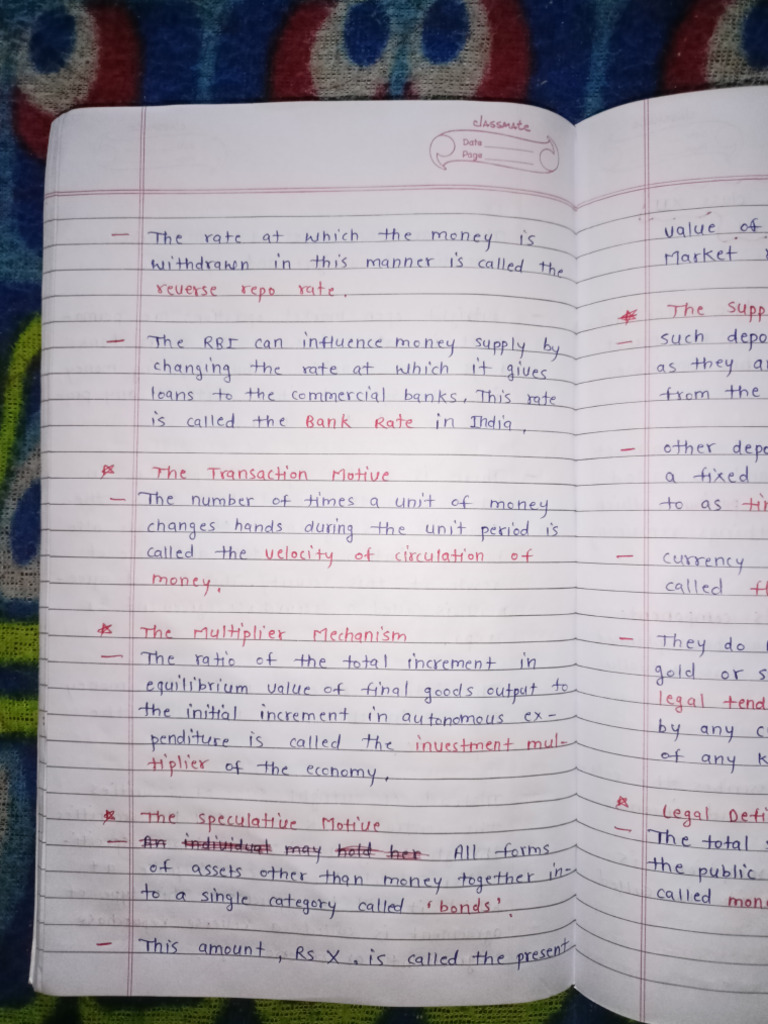 classmate
Date
Page
— The rate at which the money is
withdrawn in this manner is called the
reverse repo rate.
— The RBI can influence money supply by
changing the rate at which it gives
loans to the commercial banks. This rate
is called the Bank Rate in India.
* The Transaction Motive
— The number of times a unit of money
changes hands during the unit period is
called the velocity of circulation of
money.
* The Multiplier Mechanism
— The ratio of the total increment in
equilibrium value of final goods output to
the initial increment in autonomous ex-
penditure is called the investment mul-
tiplier of the economy.
* The speculative Motive
— An individual may hold her All forms
of assets other than money together in-
to a single category called 'bonds'.
— This amount, Rs X, is called the present
value of
Market
* The Supp
— such depo
as they a
from the
— other depo
a fixed
to as ti
— currency
called f
— They do
gold or s
legal tend
by any c
of any k
* Legal Defi
— The total s
the public
called mon